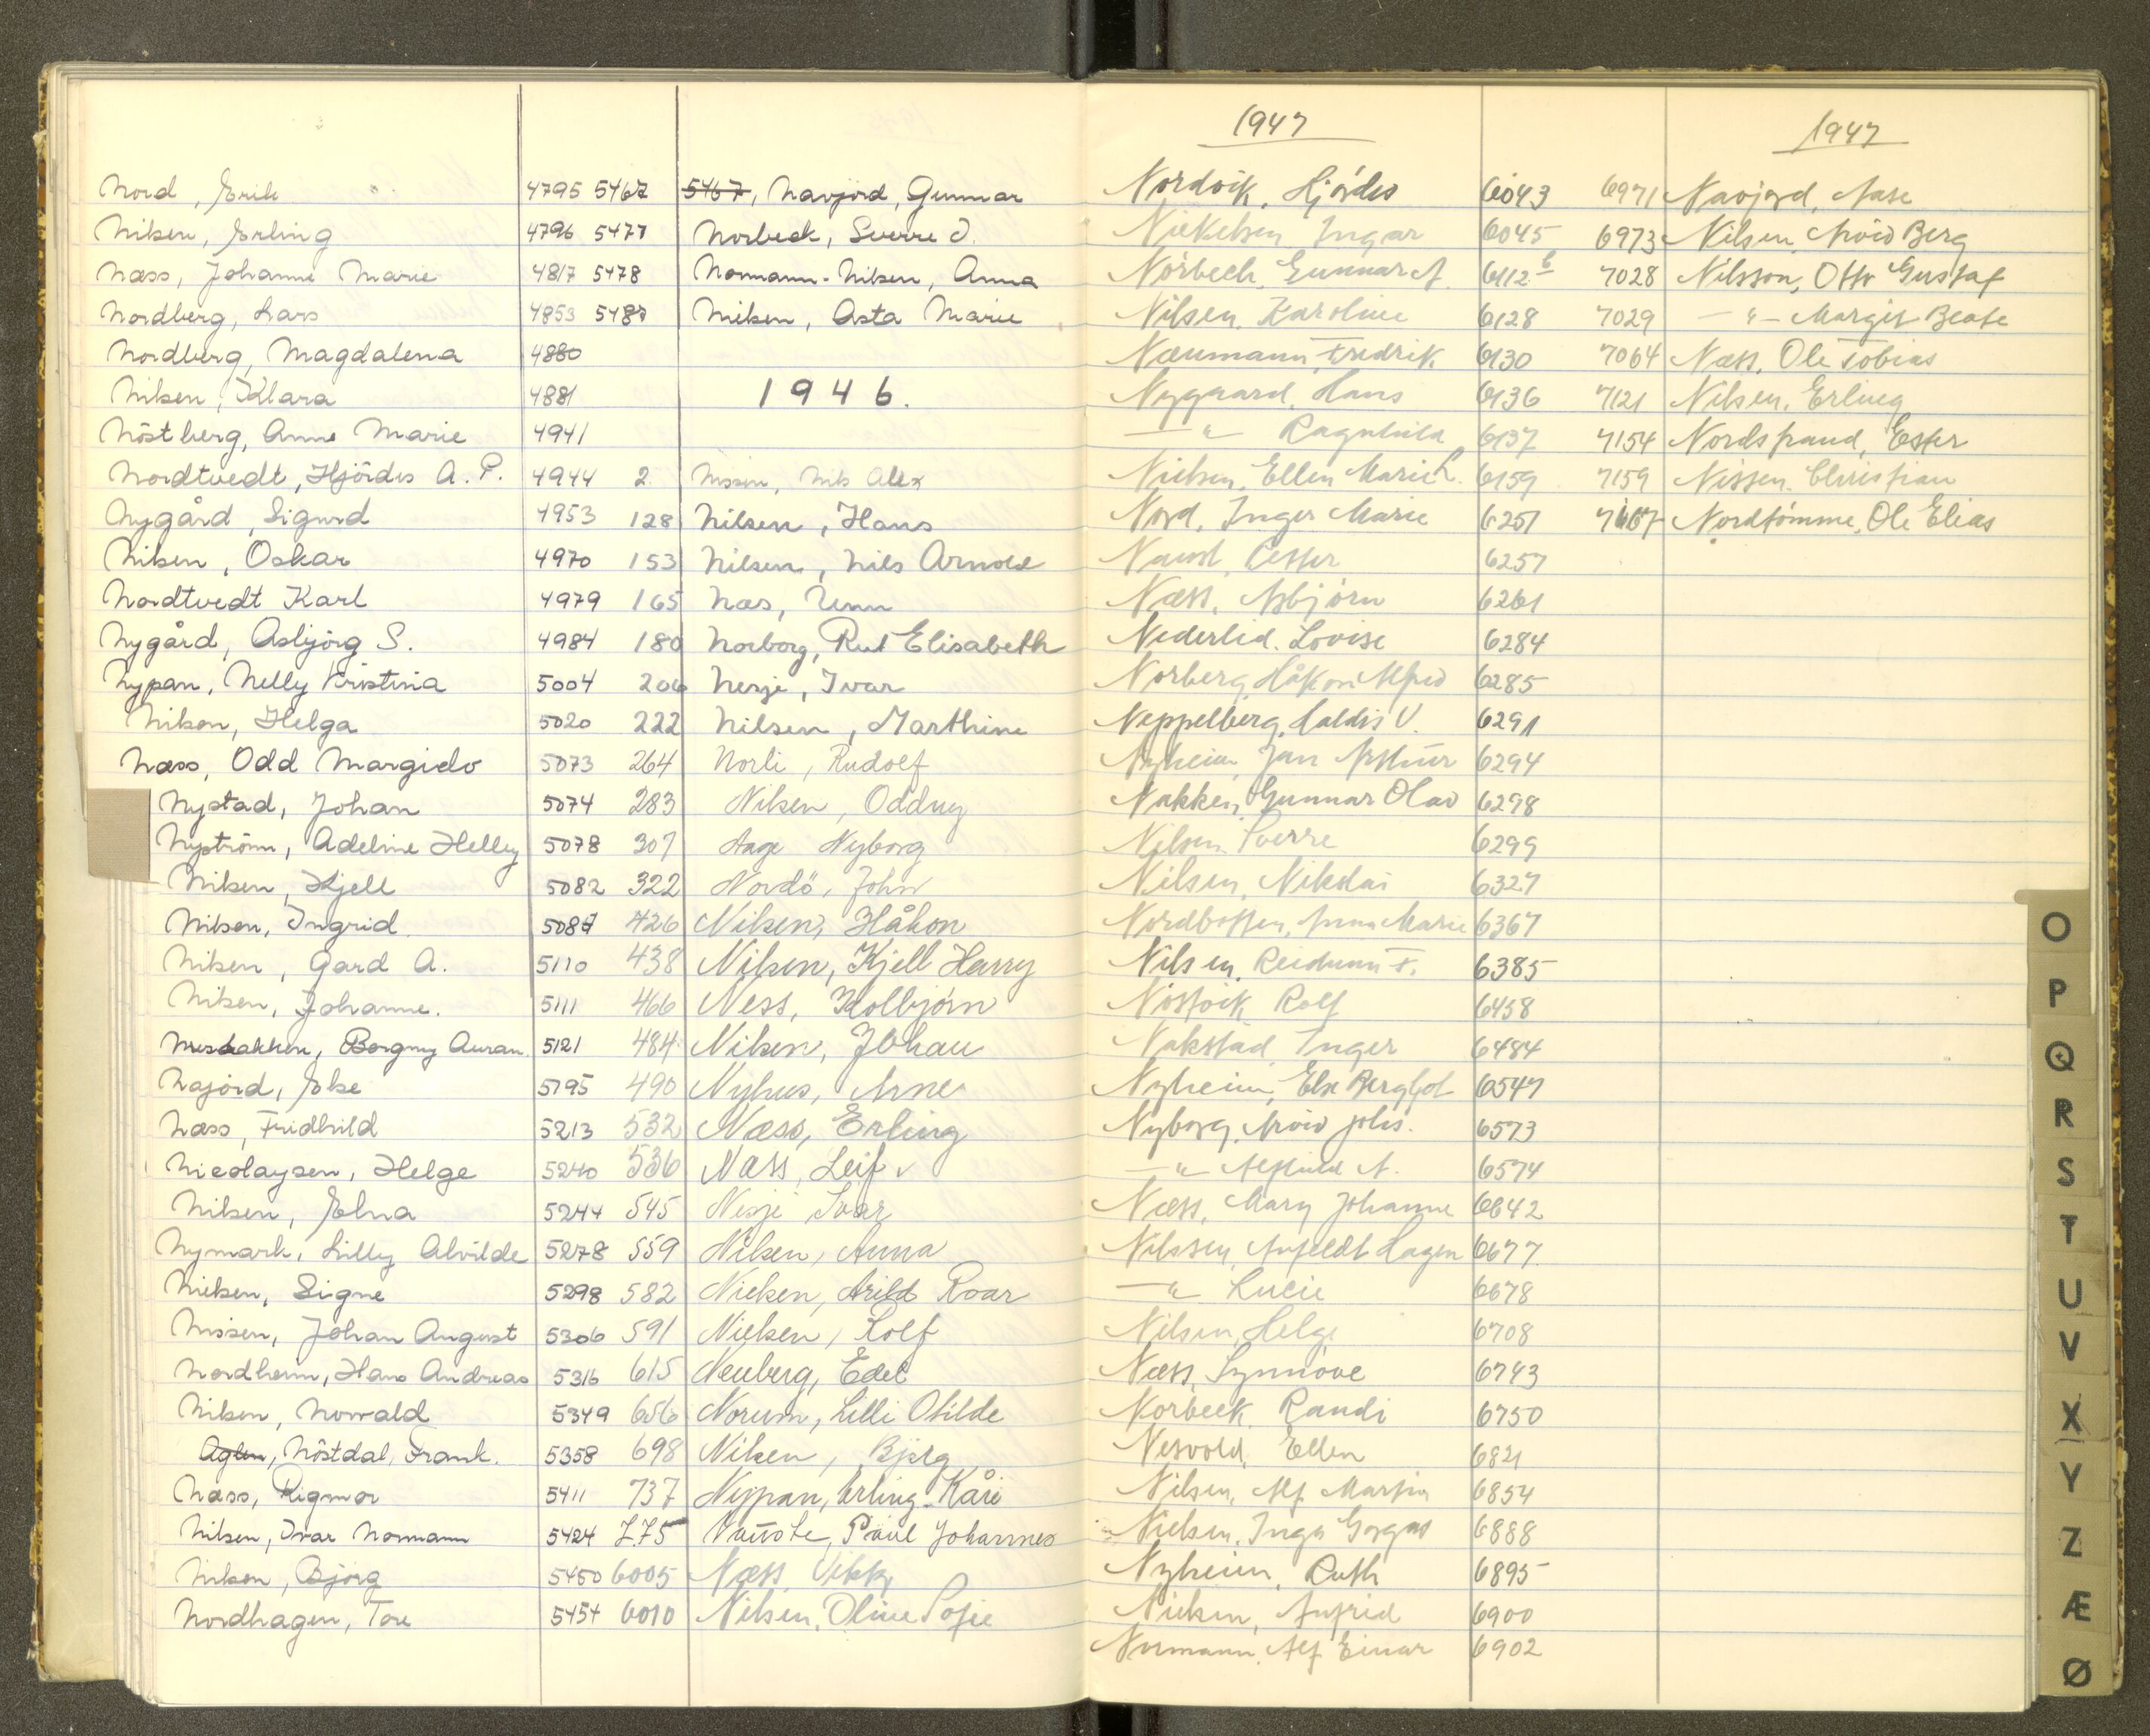 Nord, Erik 4795
Nilsen, Erling 4796
Næss, Johanne Marie 4817
Nordberg, Lars 4853
Nordberg, Magdalena 4880
Nilsen, Klara 4881
Nöstberg, Anne Marie 4941
Nordtvedt, Hjördis A. P. 4944
Nygård, Sigurd 4953
Nilsen, Oskar 4970
Nordtvedt Karl 4979
Nygård, Asbjörg S. 4984
Nypan, Nelly Kristina 5004
Nilsen, Helga 5020
Næss, Odd Margido 5073
Nystad, Johan 5074
Nyström, Adeline Helley 5078
Nilsen, Kjell 5082
Nilsen, Ingrid 5087
Nilsen, Gard A. 5110
Nilsen, Johanne. 5111
Borgny 5121
Najörd, Else 5195
Næss, Fridhild 5213
Nicolaysen, Helge 5240
Nilsen, Elna 5244
Nymark, Lilly Alvilde 5278
Nielsen, Signe 5298
Nissen, Johan August 5306
Nordheim, Hans Andreas 5316
Nilsen, Norvald 5349
Aglen, Nöstdal, Frank. 5358
Næss, Rigmor 5411
Nilsen, Ivar Normann 5424
Nilsen, Björg 5450
Nordhagen, Tore 5454
5467 5467, Navjörd, Gunnar
5477 Norbeck, Sverre J.
5478 Normann-Nilsen, Anna
5487 Nielsen, Asta Marie
1946.
2 Nissen, Nils Alex
128 Nilsen, Hans
153 Nilsen, Nils Arnold
165 Næs, Unn
180 Norborg, Rut Elisabeth
206 Nesje, Ivar
222 Nilsen, Marthine
264 Norli, Rudolf
283 Nilsen, Oddny
307 Aage Nyborg
322 Nordö, John
426 Nilsen, Håkon
438 Nilsen, Kjell Harry
466 Ness, Kolbjörn
484 Nilsen, Johan
490 Nyhus, Arne
532 Næss, Erling
536 Næss, Leif
545 Nesje Ivar
559 Nilsen, Anna
582 Nielsen, Arild Roar
591 Nielsen, Rolf
615 Neuberg, Edel
656 Norum, Lilli Otilde
698 Nilsen, Björg
737 Nypan, Erling Kåre
775 Paul Johannes
6005 Næss
6010 Nilsen, Oline Sofie
1947
Nordvik, Hjördis 6043
Nickelsen Ingar 6045
Norbech, Gunnar A. 6112 b
Nilsen, Karoline 6128
Næumann Fredrik 6130
Nygaard, Hans 6136
— " — Ragnhild 6137
Nielsen, Ellen Marie L. 6159
Nord, Inger Marie 6251
Naust, Ester 6257
Næss, Asbjörn 6261
Nederlid, Lovise 6284
Norberg, Håkon Alfred 6285
Neppelberg, Haldis V. 6291
Nyheim, Jan Arthur 6294
Nakken, Gunnar Olav 6298
Nilsen Sverre 6299
Nilsen, Nikolai 6327
Anne Marie 6367
Nilsen, Reidunn T. 6385
Rolf 6458
Nakstad Inger 6484
Nyheim, Else Bergljot 6547
Nyborg, Arvid Johs. 6573
— " — Alfhild A. 6574
Næss, Mary Johanne 6642
Nilssen, Anfeldt Hagen 6677
— " — Lucie 6678
Nilsen, Helge 6708
Næss, Synnöve 6743
Norbeck, Randi 6750
Nesvold, Ellen 6821
Nilsen, Alf Martin 6854
Nielsen, 6888
Nyheim, Ruth 6895
Nielsen, Anfrid 6900
Normann, Alf Einar 6902
1947
6971 Navjord, Aase
6973 Nilsen Arvid Berg
7028 Nilsson, Otto Gustaf
7029 — " — Margit Beate
7064 Næss, Ole Tobias
7121 Nilsen, Erling
7154 Nordstrand, Ester
7159 Nissen, Christian
7167 Nordtömme, Ole Elias
O
P
Q
R
S
T
U
V
X
Y
Z
Æ
Ø